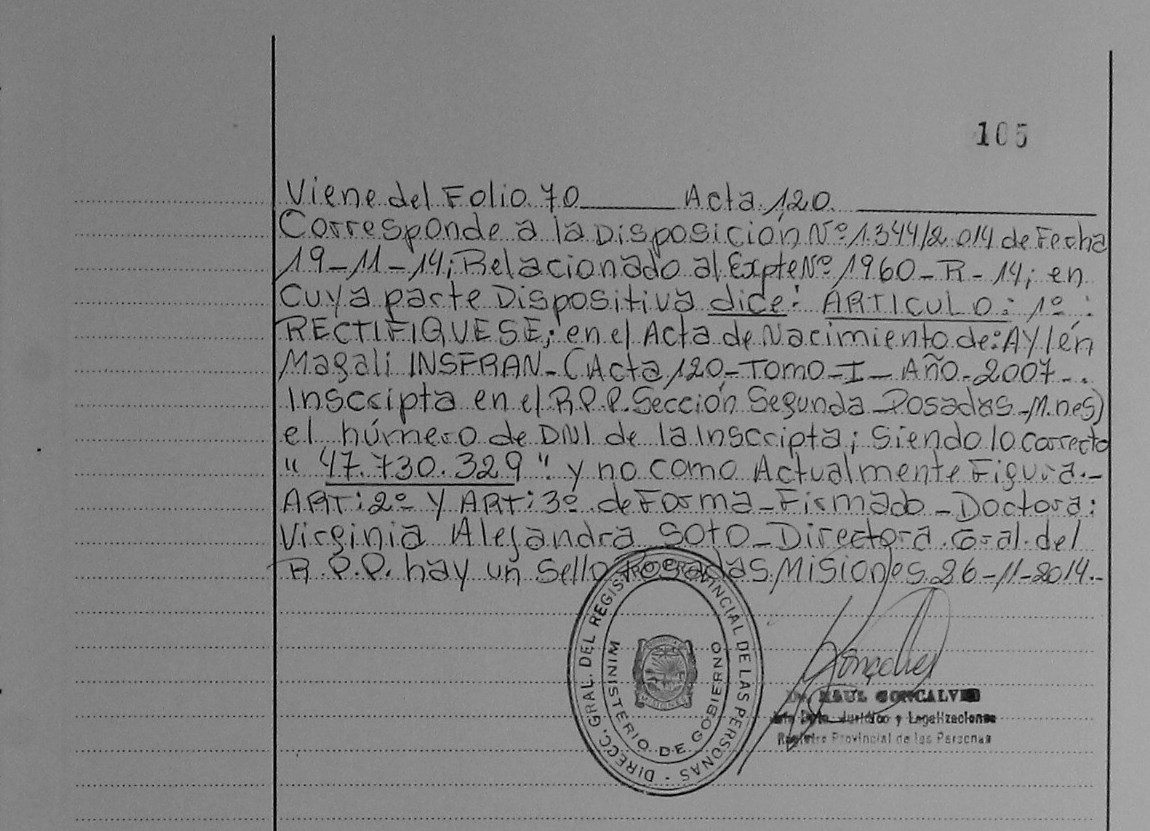 105
Viene del Folio 70 Acta 120
Corresponde a la Disposición Nº 1344/2.014 de Fecha
19-11-14; Relacionado al Expte Nº 1960-R-14; en
cuya parte Dispositiva dice: ARTICULO: 1º:
RECTIFIQUESE; en el Acta de Nacimiento de: Aylén
Magali INSFRAN-(Acta 120-Tomo-I-Año-2007-
Inscripta en el R.P.P. Sección Segunda Posadas-M.nes)
el número de DNI de la Inscripta; siendo lo correcto
"47.730.329" y no como Actualmente Figura.-
ART: 2º Y ART: 3º de Forma-Firmado-Doctora:
Virginia Alejandra SOTO-Directora Gral. del
R.P.P. hay un sello Posadas Misiones 26-11-2014.-
DIRECC. GRAL. DEL REGISTRO PROVINCIAL DE LAS PERSONAS -
MINISTERIO DE GOBIERNO
MISIONES
Goncalves
Dr. RAUL GONCALVES
Jefe Dpto. Jurídico y Legalizaciones
Registro Provincial de las Personas